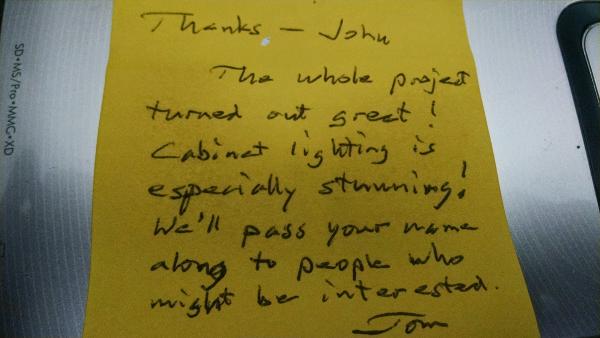 Thanks — John
The whole project
turned out great!
Cabinet lighting is
especially stunning!
We'll pass your name
along to people who
might be interested.
Tom
SD•MS/Pro•MMC•XD